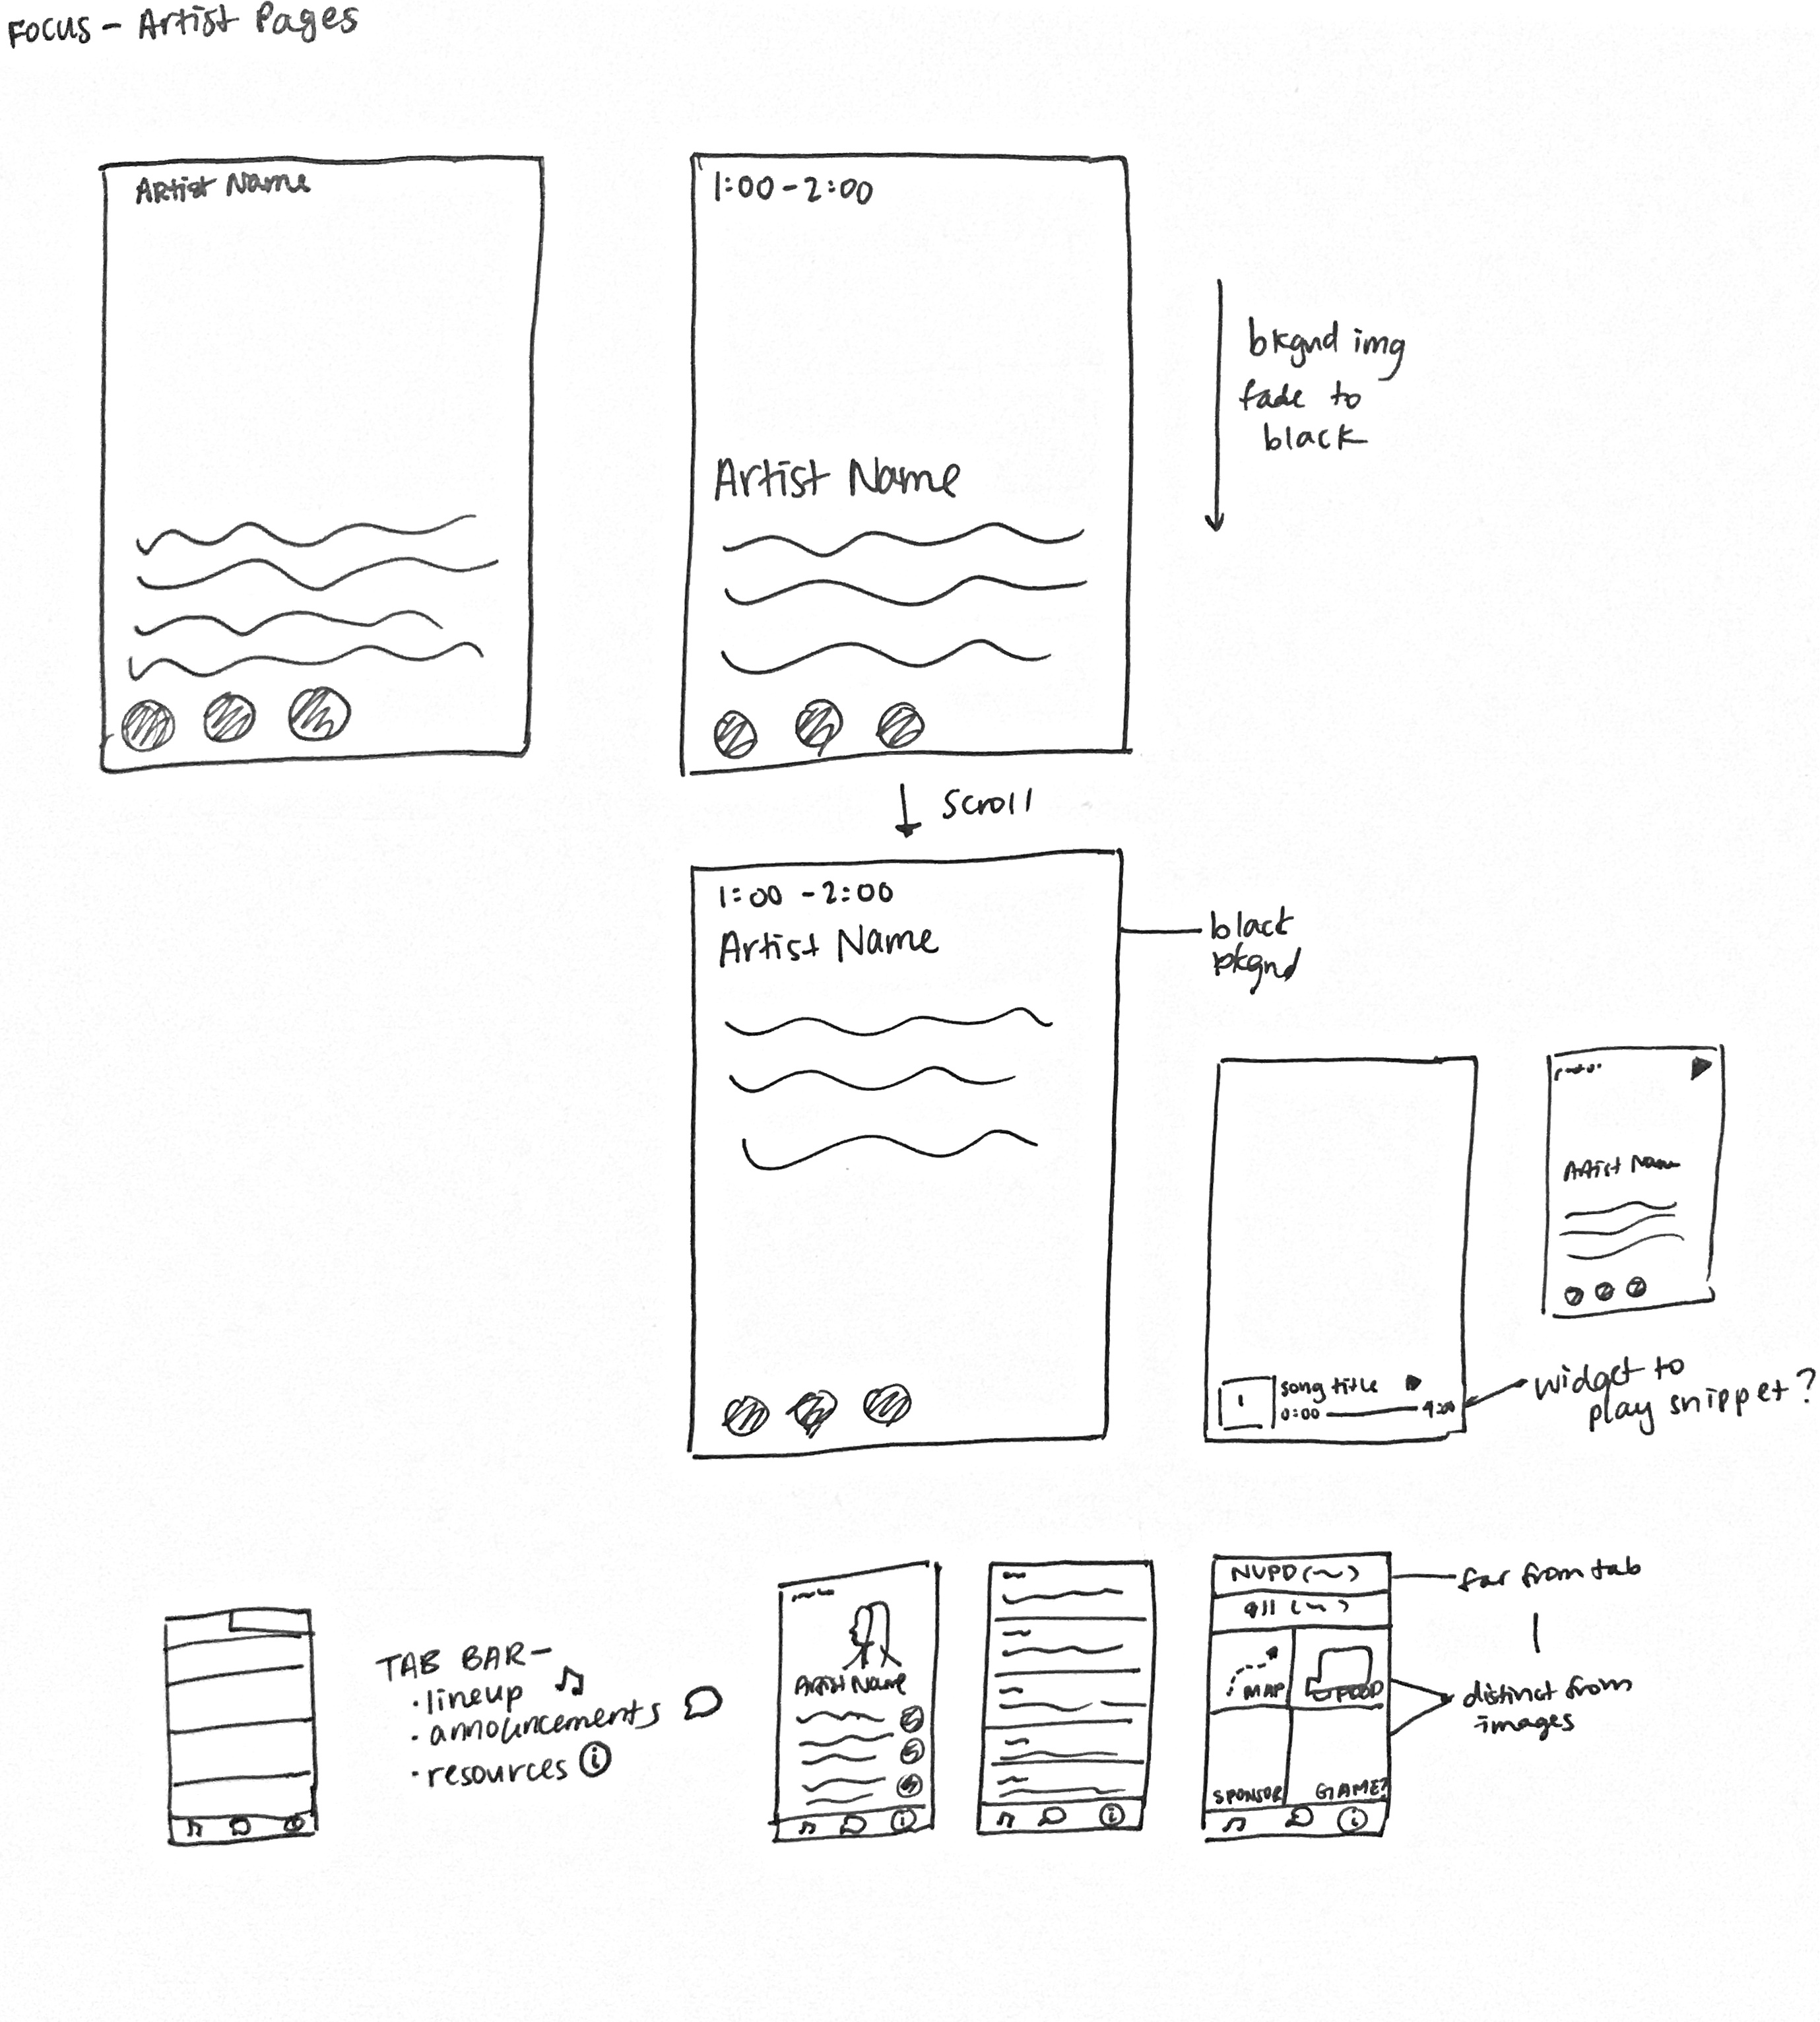 Focus - Artist Pages
Artist Name
1:00-2:00
bkgnd img
fade to
black
Artist Name
Scroll
1:00-2:00
Artist Name
black
bkgnd
Artist Name
song title
0:00
widget to
play snippet?
TAB BAR-
·lineup
·announcements
·resources
i
Artist Name
i
i
NUPD (~)
911 (~)
MAP
FOOD
SPONSOR
GAME?
i
far from tab
distinct from
images